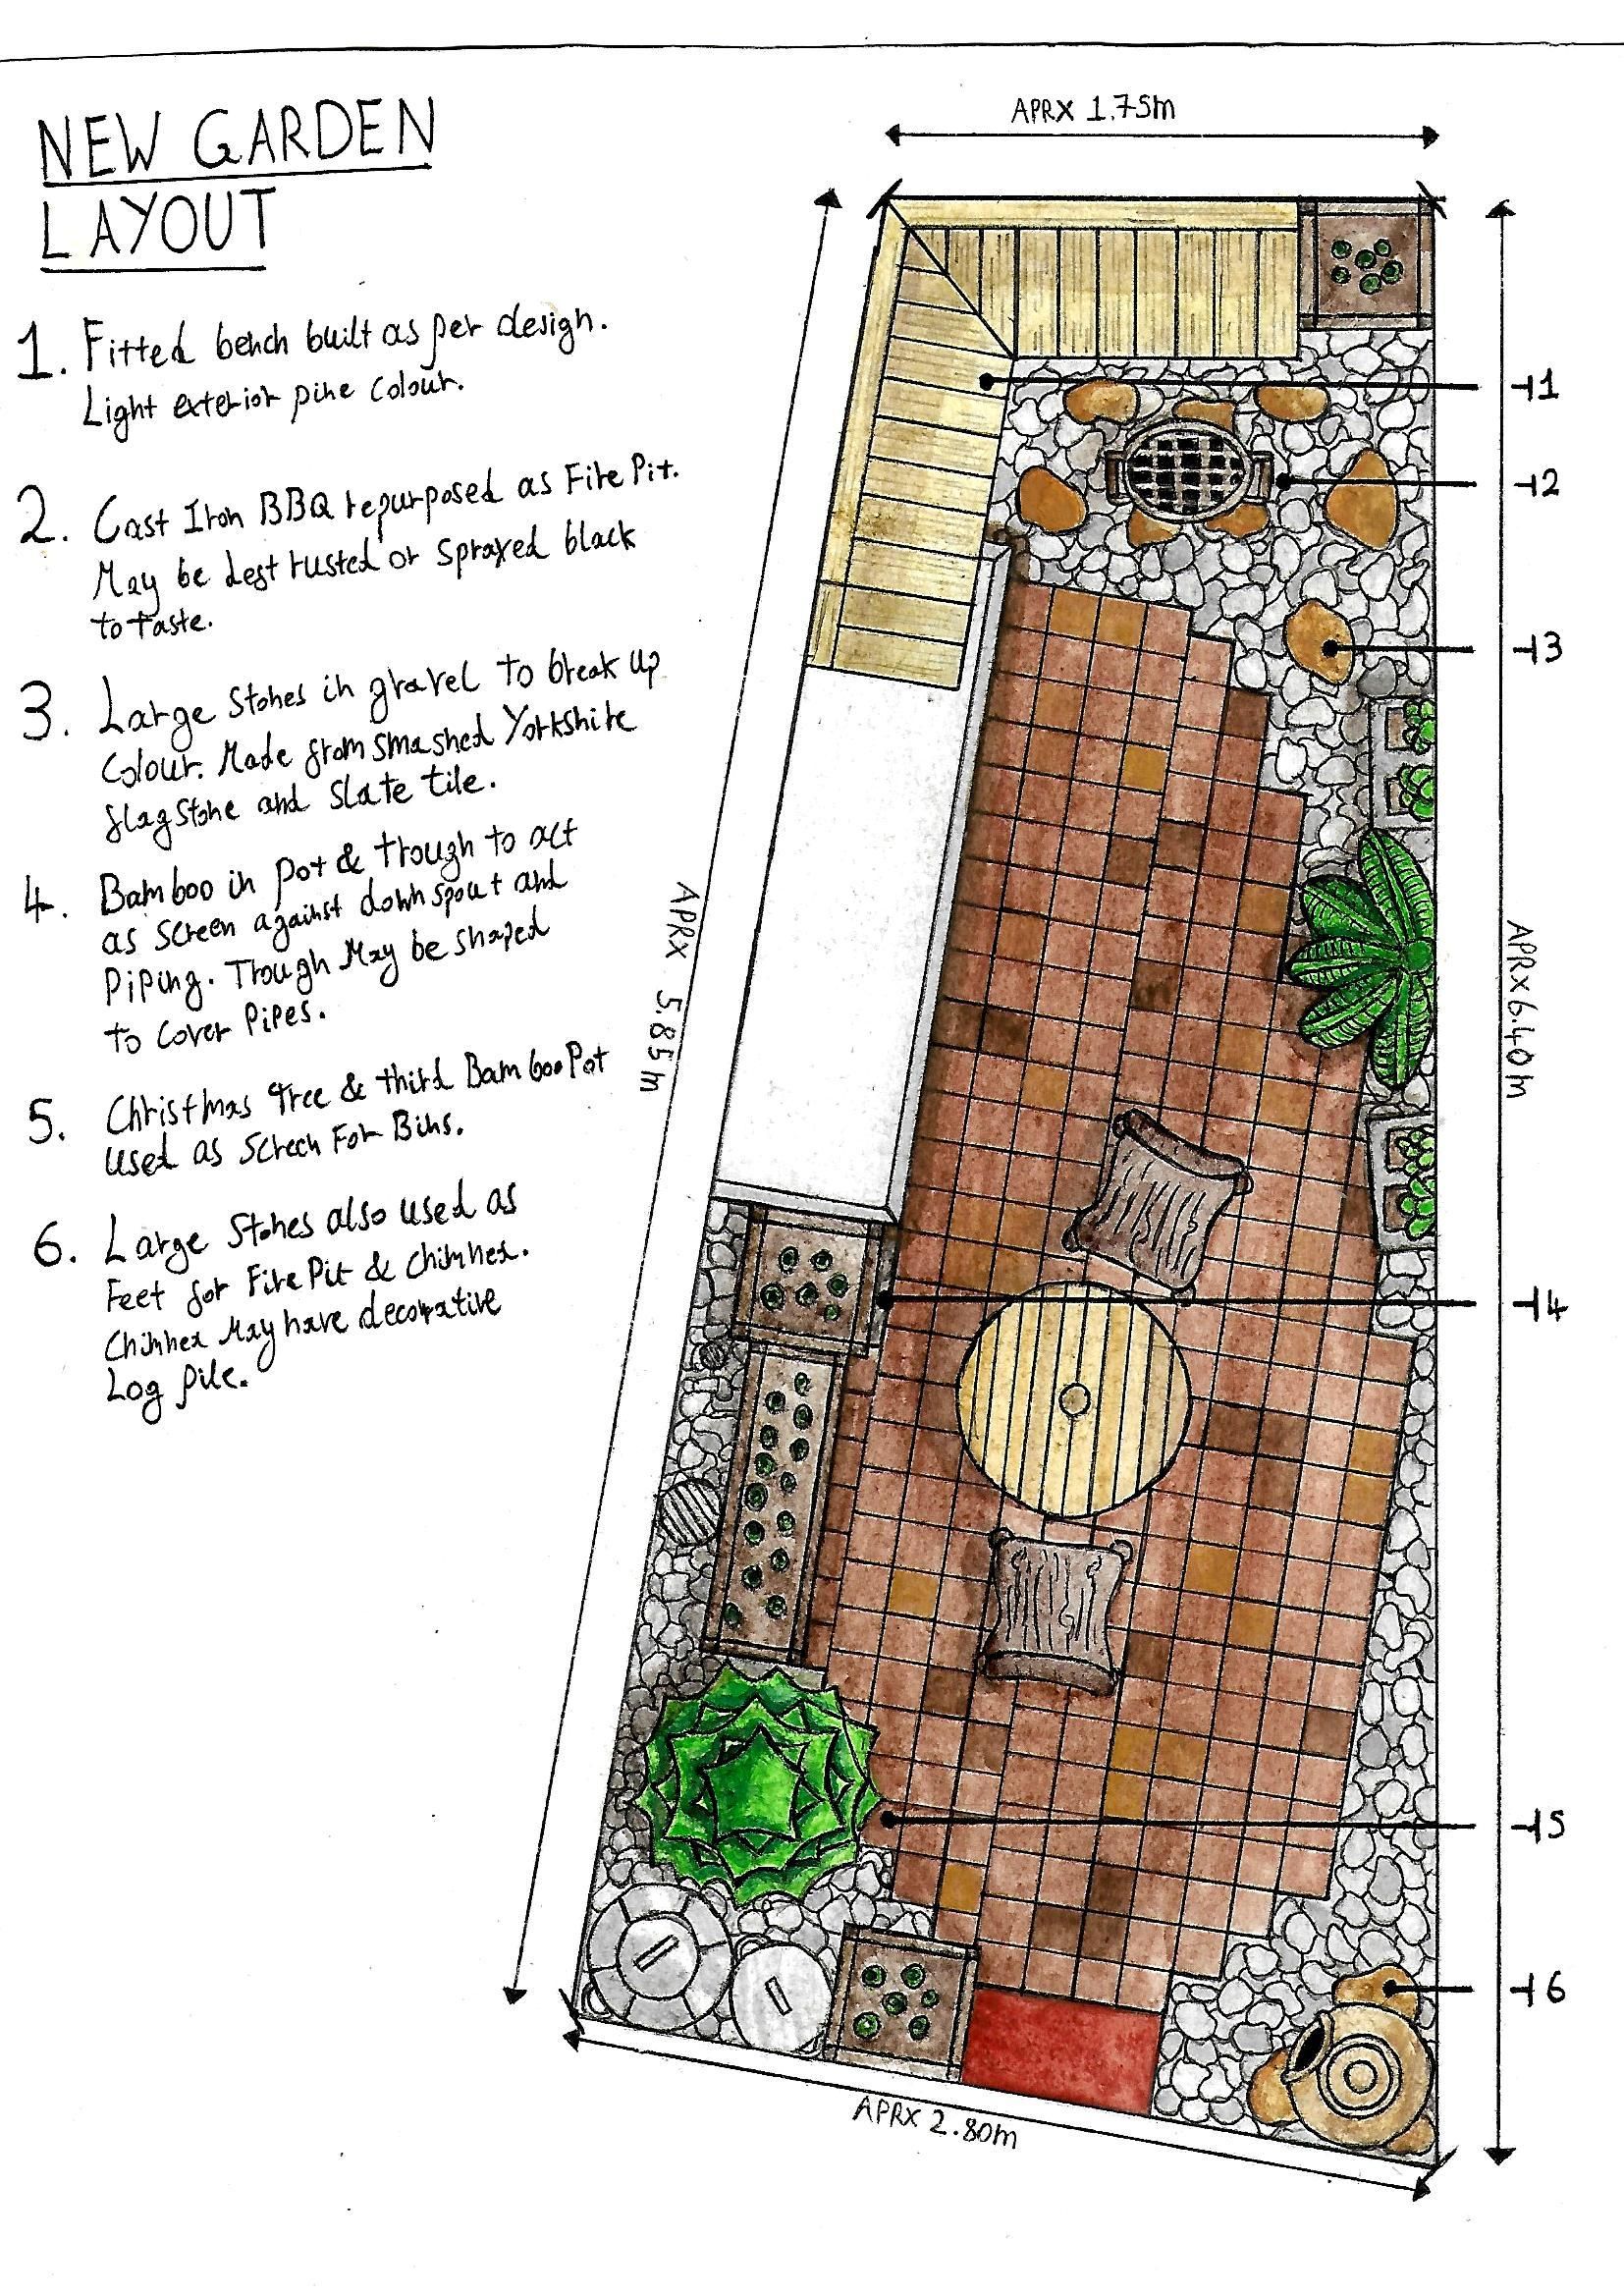 NEW GARDEN
LAYOUT
1. Fitted bench built as per design.
Light exterior pine colour.
2. Cast Iron BBQ repurposed as Fire Pit.
May be lest rusted or sprayed black
to taste.
3. Large Stones in gravel to break up
Colour. Made from smashed Yorkshire
flagstone and slate tile.
4. Bamboo in pot & trough to act
as screen against downspout and
Piping. Trough May be shaped
to cover Pipes.
5. Christmas Tree & third Bamboo Pot
used as Screen For Bins.
6. Large Stones also used as
Feet for Fire Pit & Chimnea.
Chimnea May have decorative
Log pile.
APRX 1.75m
APRX 5.85m
APRX 6.40m
APRX 2.80m
1
2
3
4
5
6